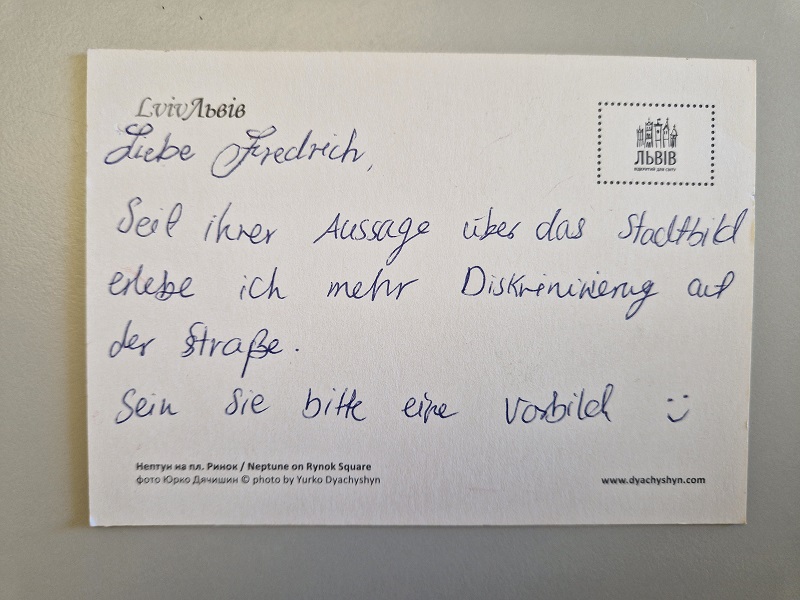 LvivЛьвів
ЛЬВІВ
ВІДКРИТИЙ ДЛЯ СВІТУ
Liebe Fredrich,
Seit ihrer Aussage über das Stadtbild
erlebe ich mehr Diskriminierug auf
der Straße.
Sein Sie bitte eine Vorbild :)
Нептун на пл. Ринок / Neptune on Rynok Square
фото Юрко Дячишин © photo by Yurko Dyachyshyn
www.dyachyshyn.com